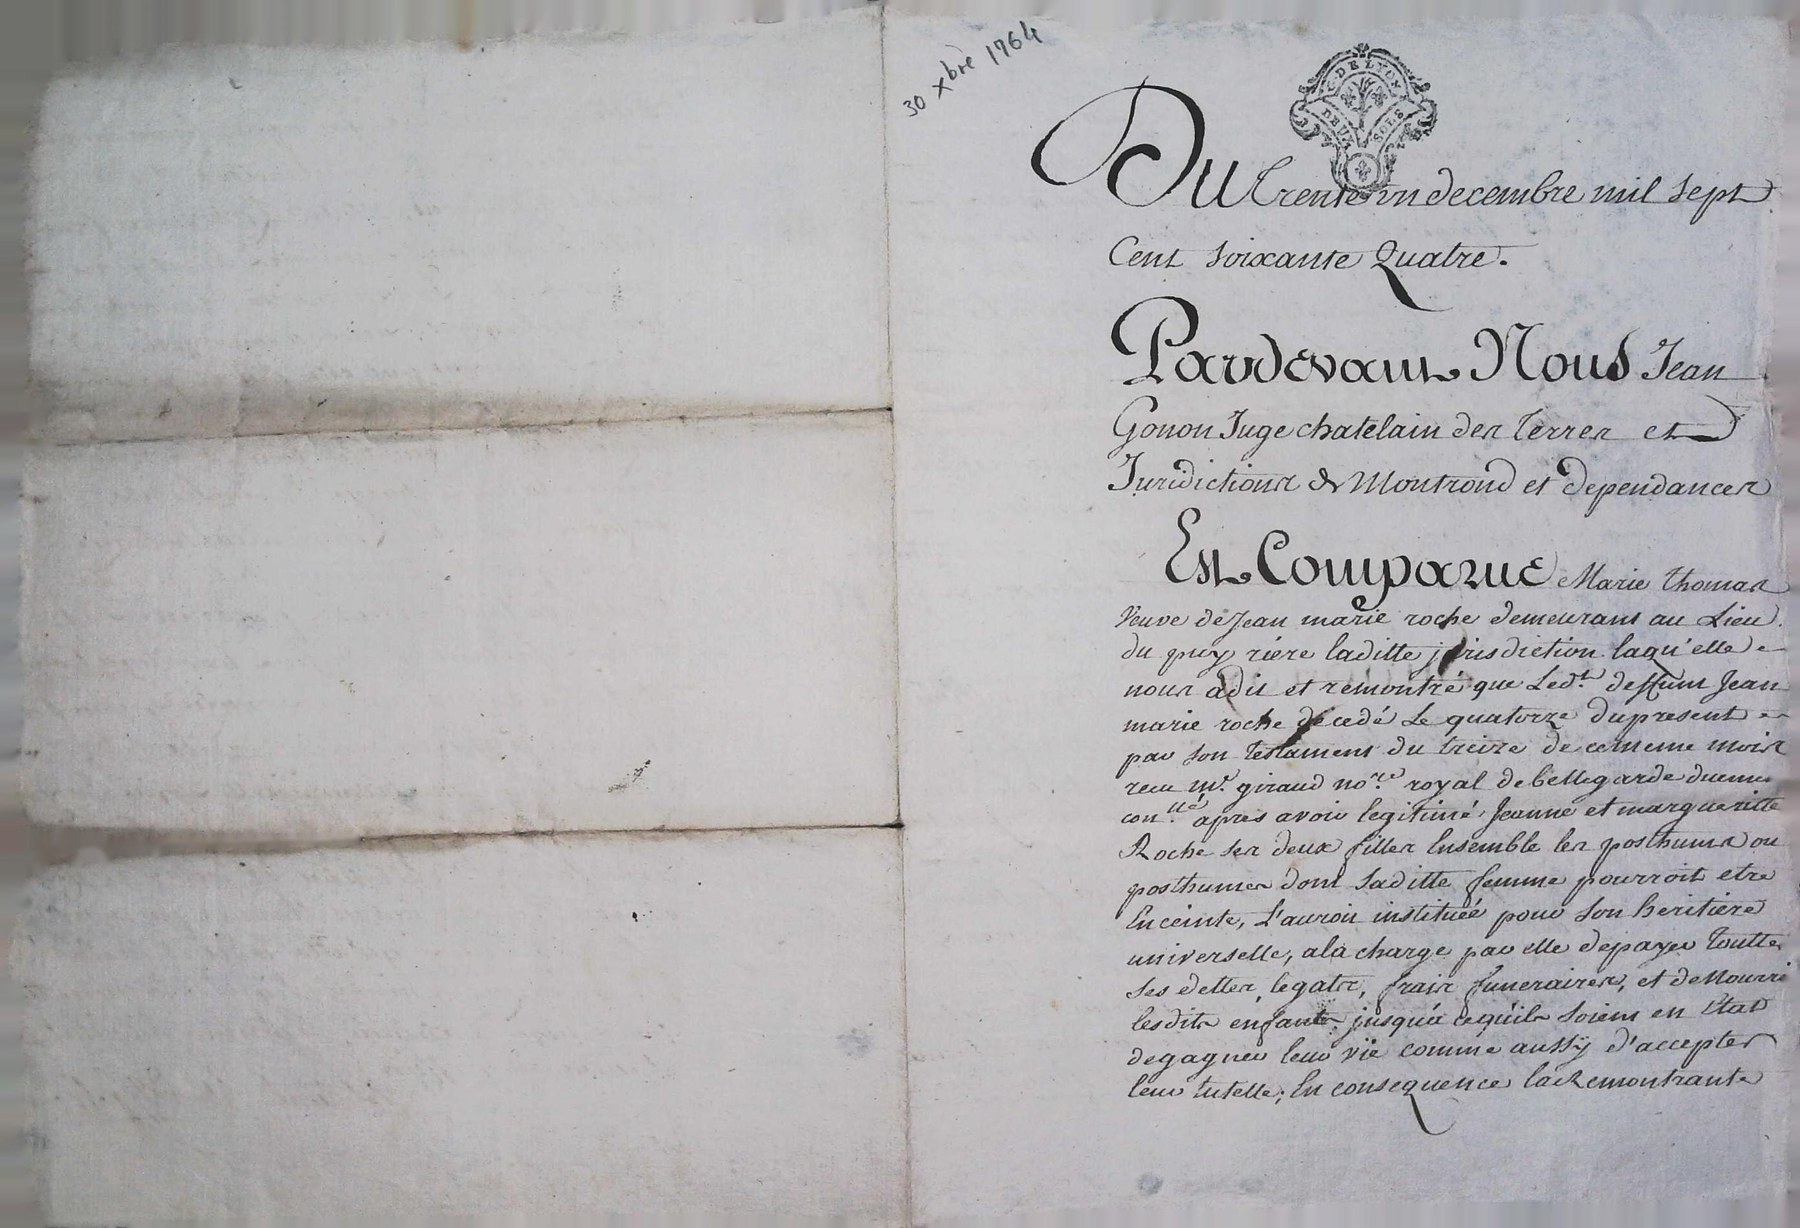 30 xbre 1764
G. DE LYON
DEUX SOLS
Du trente un decembre mil sept
Cent soixante Quatre.
Pardevant Nous Jean
Gonon Juge chatelain des terres et
Juridictions de Montrond et dependances
Est Comparue Marie thomas
veuve de Jean marie roche demeurant au Lieu
du puy riére laditte jurisdiction laqu'elle
nous adit et remontré que Ledt. deffunt Jean
marie roche decedé Le quatorze dupresent
par son testament du treize de cememe mois
recu me. giraud nore. royal de bellegarde duemt
con.llé après avoir legitimé Jeanne et margueritte
Roche ses deux filles Ensemble les posthums ou
posthumes dont saditte femme pourroit etre
Enceinte, L'auroit instituée pour son heritiere
universelle, ala charge par elle depayer toutte
ses dettes, legats, frais funeraires, et deNourrir
lesdits enfants jusqu'a cequils soient en Etat
degagner leur vie comme aussÿ d'accepter
leur tutelle; En consequence laRemontrante